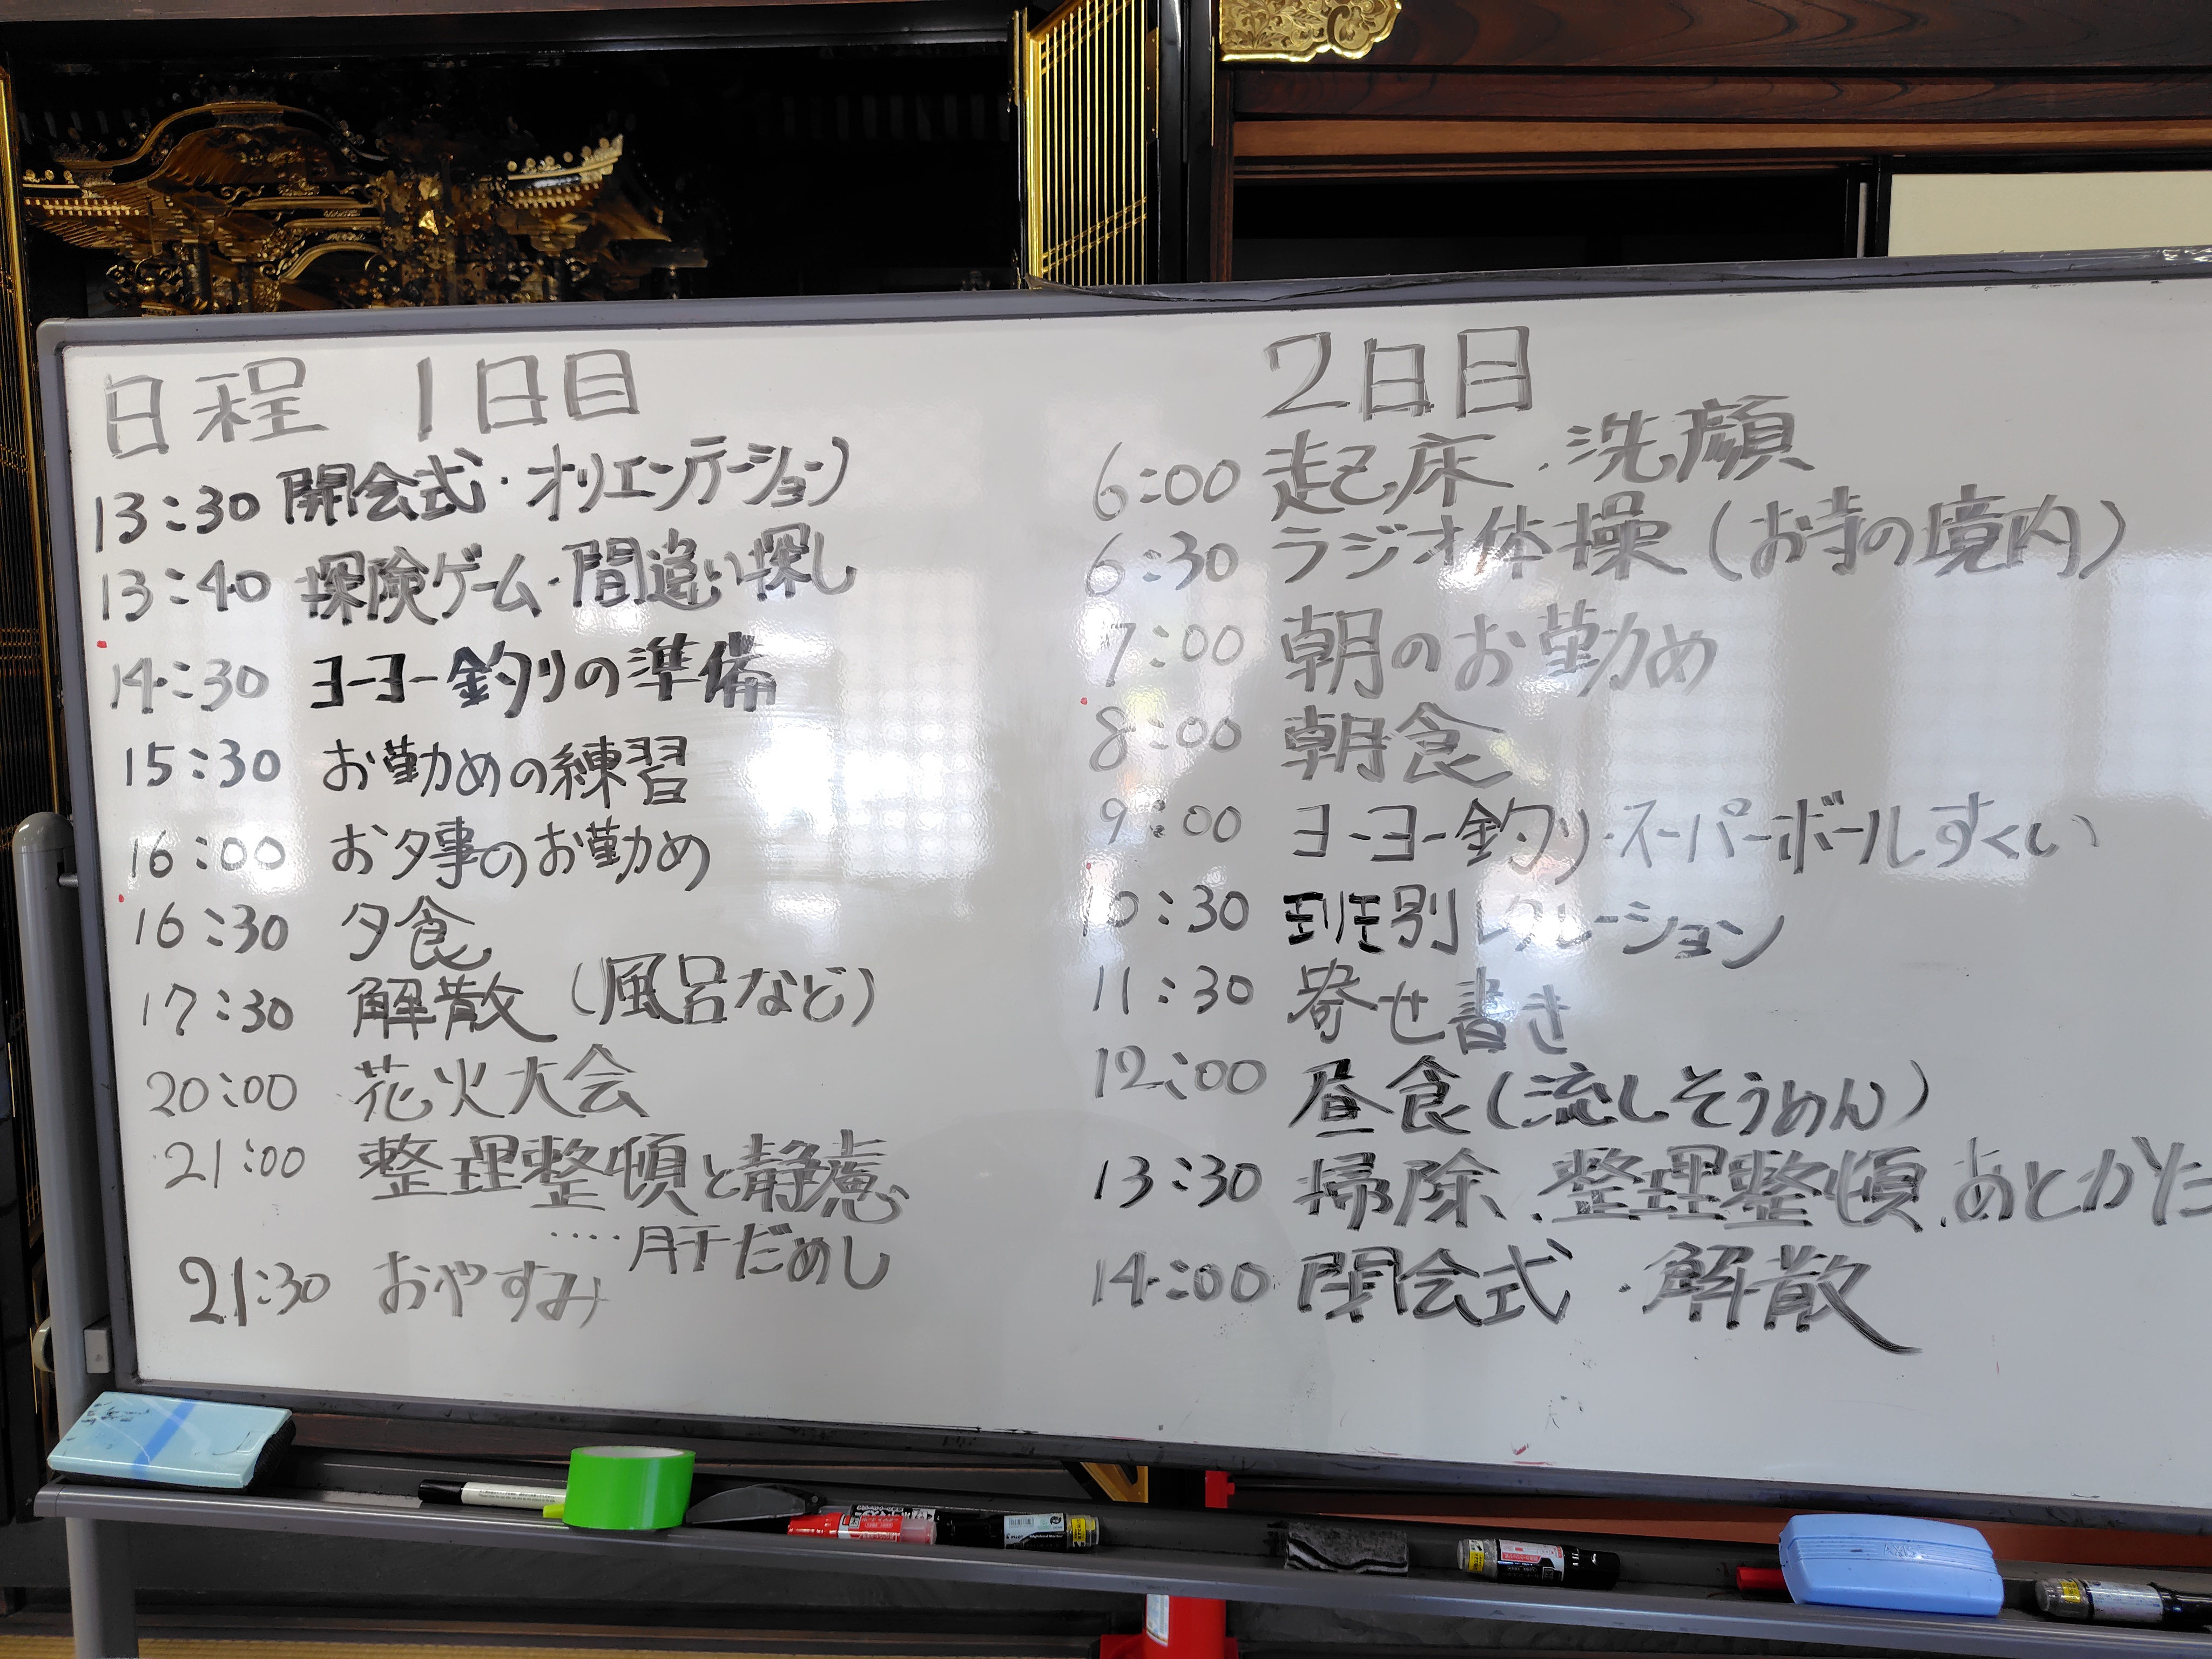 日程 1日目
13:30 開会式・オリエンテーション
13:40 探険ゲーム・間違い探し
14:30 ヨーヨー釣りの準備
15:30 お勤めの練習
16:00 お夕事のお勤め
16:30 夕食
17:30 解散（風呂など）
20:00 花火大会
21:00 整理整頓と静慮
....肝だめし
21:30 おやすみ
2日目
6:00 起床・洗顔
6:30 ラジオ体操（お寺の境内）
7:00 朝のお勤め
8:00 朝食
9:00 ヨーヨー釣り・スーパーボールすくい
10:30 班別レクレーション
11:30 寄せ書き
12:00 昼食（流しそうめん）
13:30 掃除、整理整頓、あとかた
14:00 閉会式・解散